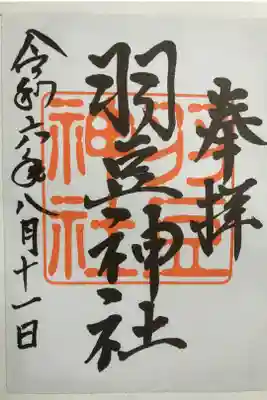 奉拝
羽豆神社
令和六年八月十一日
羽豆神社